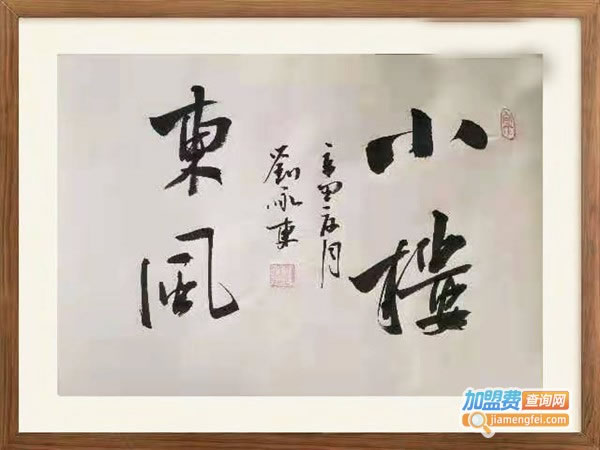 小樓
東風
月
劉咏東
加盟费查询网
jiamengfei.com